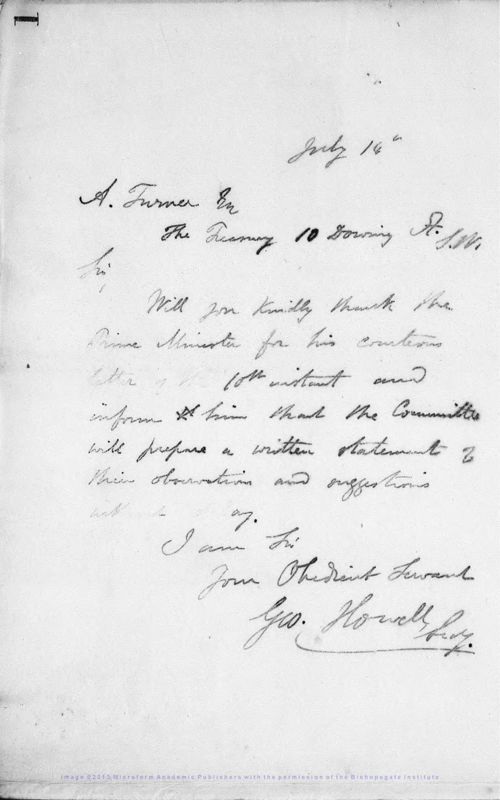 July 14"
A. Turner Esq
The Treasury 10 Downing St. S.W.
Sir,
Will you kindly thank the
Prime Minister for his courteous
letter of the 10th instant and
inform him that the Committee
will prepare a written statement of
their observations and suggestions
without delay.
I am Sir
Your Obedient Servant
Geo. Howell, Secy.
Image ©2013 Microform Academic Publishers with the permission of the Bishopsgate Institute